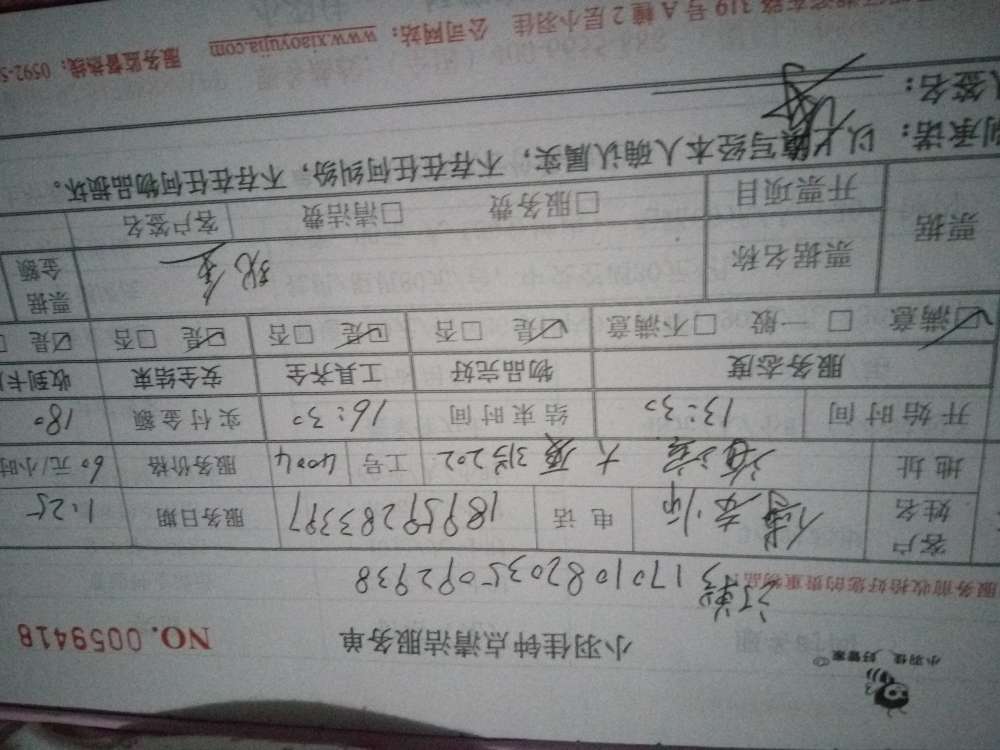 小羽佳 好管家
小羽佳钟点清洁服务单 NO. 0059418
服务前收拾好您的贵重物品
170108203509 2938
客户姓名 电话 18959283397 服务日期 1.25
地址 工号 4004 服务价格 60元/小时
开始时间 13:30 结束时间 16:30 实付金额 180
服务态度 物品完好 工具齐全 安全结束 收到卡
☑满意 □一般 □不满意 ☑是 □否 ☑是 □否 ☑是 □否 ☑是
票据 票据名称 现金 票据金额
开票项目 □服务费 □清洁费 客户签名
承诺：以上填写经本人确认属实，不存在任何纠纷，不存在任何物品损坏。
签名：
319号A幢2层小羽佳 公司网站：www.xiaoyujia.com 服务监督热线：0592-5